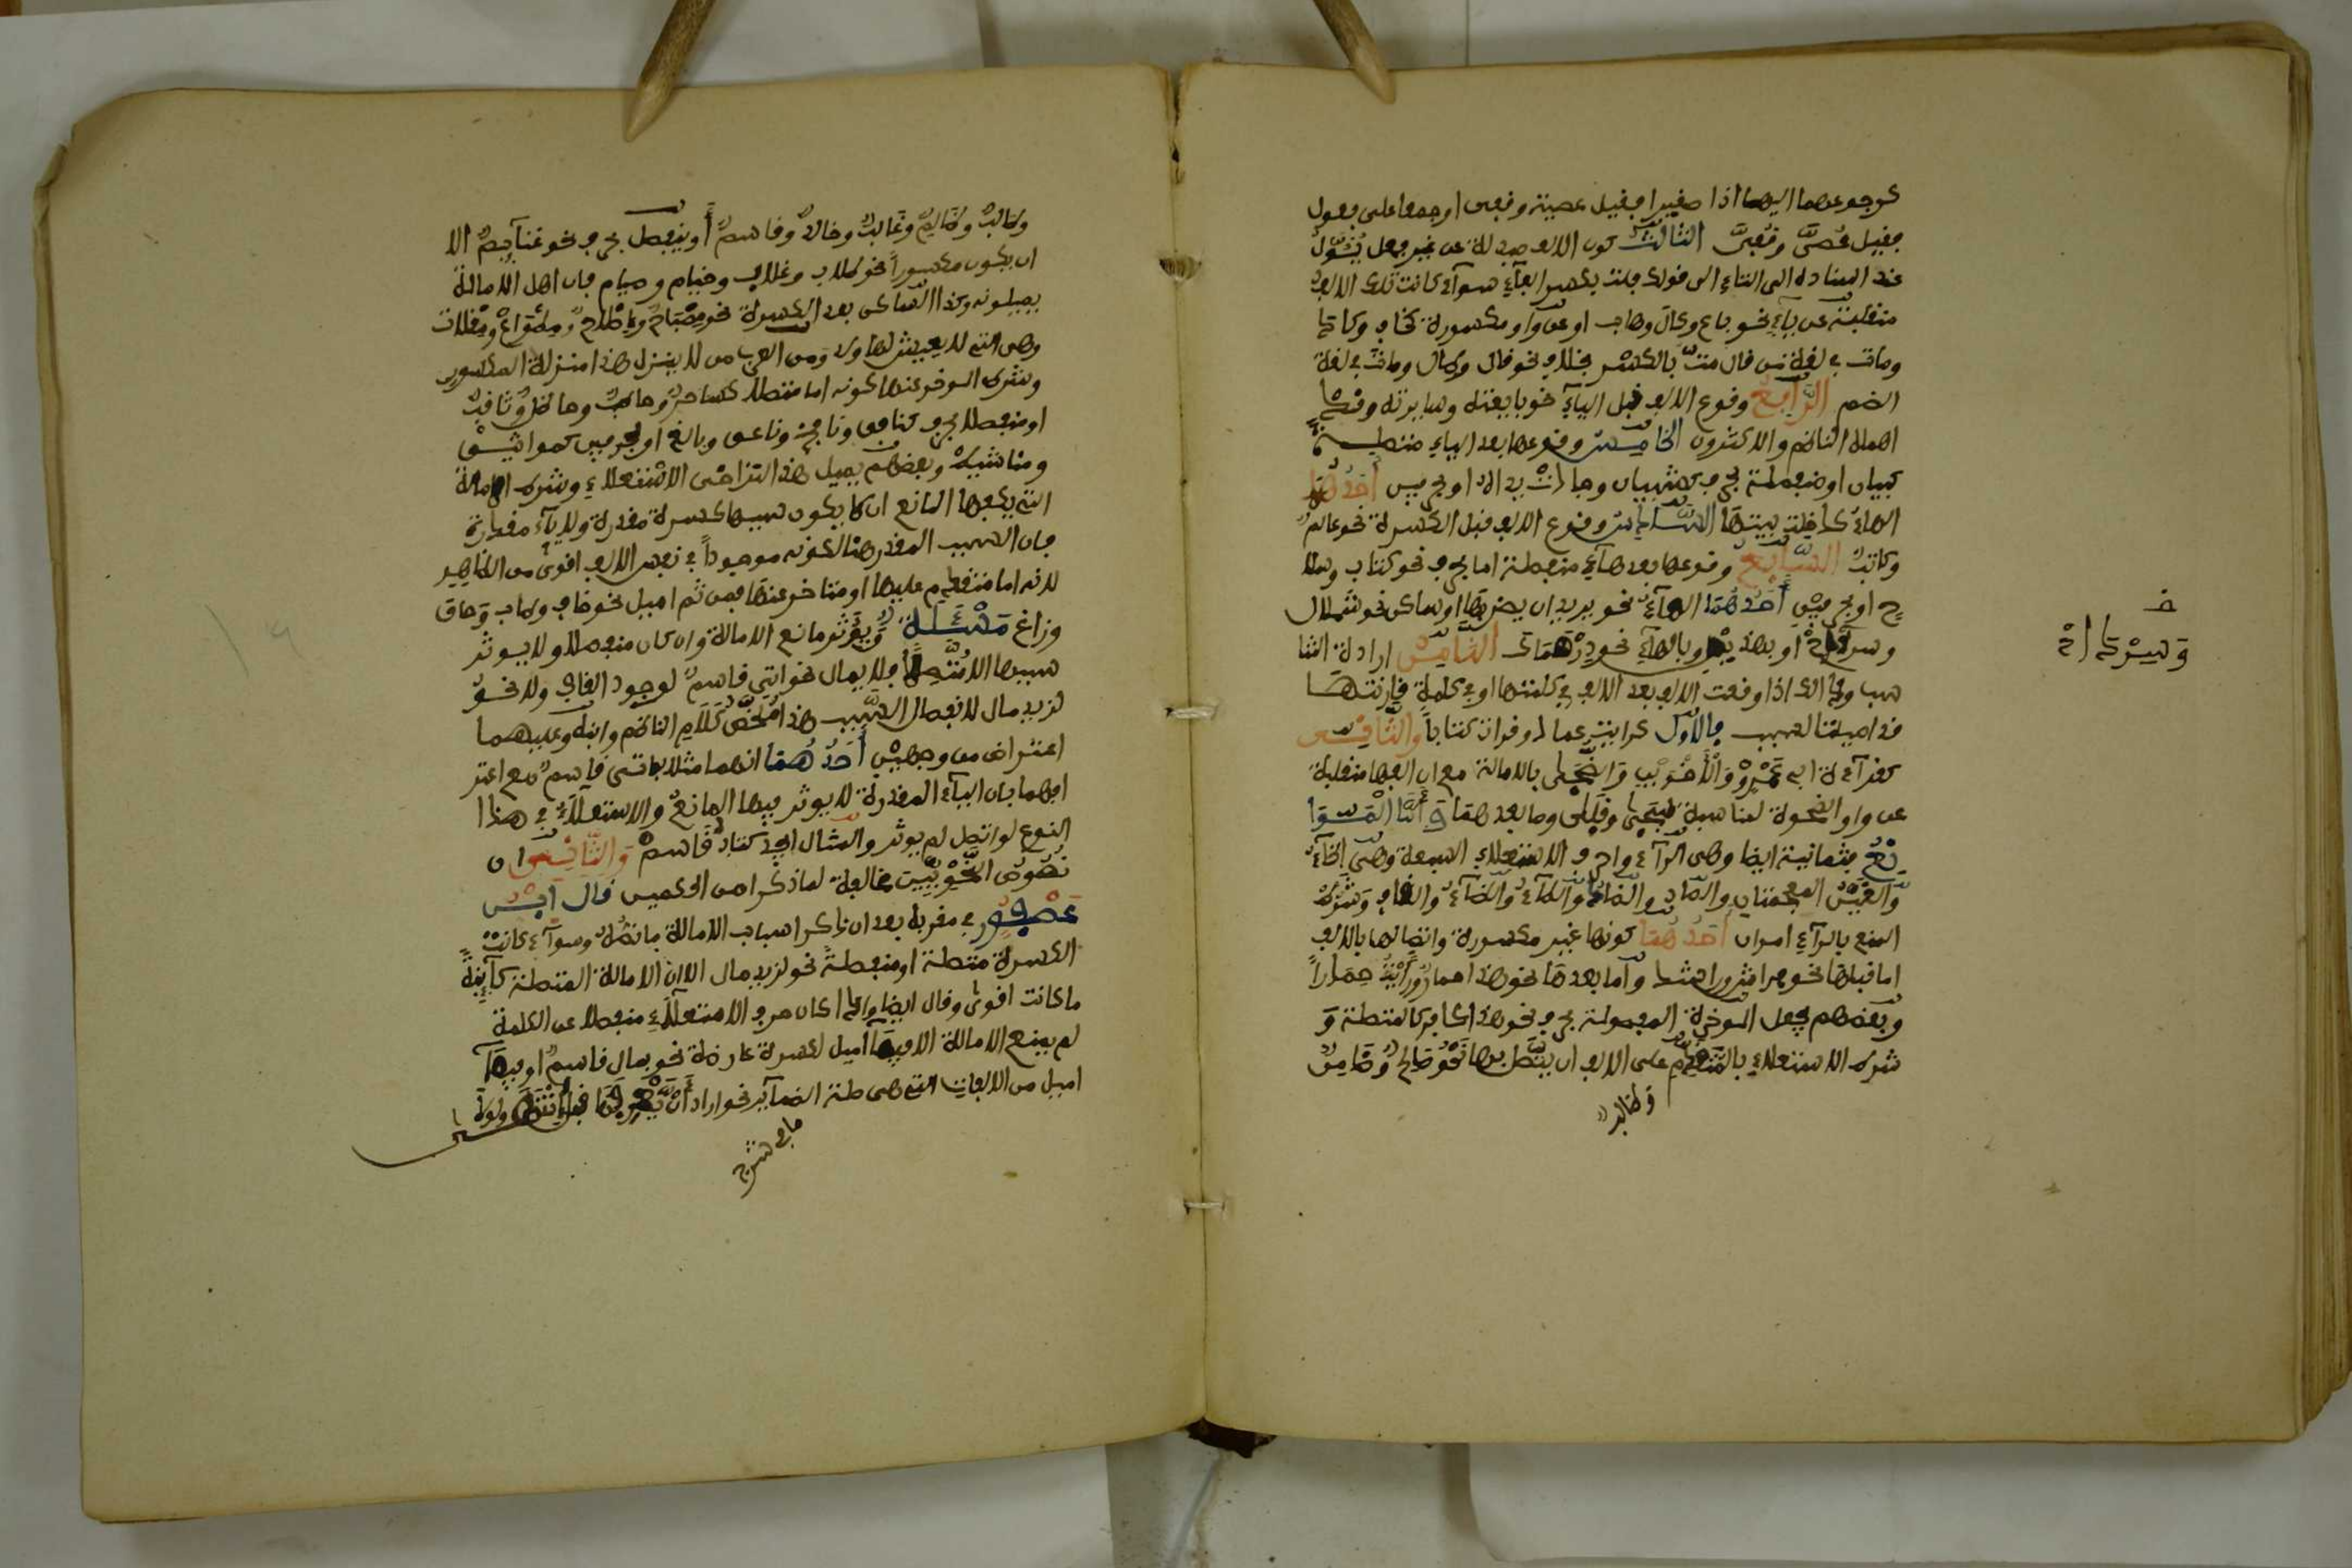 كرجوعهما اليها اذا صغيرا فقيل عصية وقفى او جمعا على فعول
فقيل عُصىّ وقُفىّ الثالث كون الالف مبدلة عن عين فعل يئول
عند اسناده الى التاء الى قولك فلت بكسر الفاء سواء كانت تلك الالف
منقلبة عن ياء نحو باع وكال وهاب او عن واو مكسورة كخاف وكاد
ومات في لغة من قال متّ بالكسر بخلاف نحو قال وطال ومات في لغة
الضم الرابع وقوع الالف قبل الياء نحو بايعته وسايرته وقد
اهمله الناظم والاكثرون الخامس وقوعها بعد الياء متصلة
كبيان او منفصلة بحرف كشيبان وجادت يداه او بحرفين احدهما
الهاء كدخلت بيتها السادس وقوع الالف قبل الكسرة نحو عالم
وكاتب السابع وقوعها بعدها منفصلة اما بحرف نحو كتاب وسلا
ح او بحرفين احدهما الهاء نحو يريد ان يضربها او ساكن نحو شملال
وسرداح او بهذين وبالهاء نحو درهماك الثامن ارادة التنا
سب وذلك اذا وقعت الالف بعد الف في كلمتها او في كلمة قارنتها
قد اميلتا لسبب فالاول كرايت عمادا وقرات كتابا والثاني
كقراءة ابي عمرو والاخوين والضحى بالامالة مع ان الفها منقلبة
عن واو الضحوة لمناسبة سجى وقلى وما بعدهما واما الموا
نع فثمانية ايضا وهى الراء واحرف الاستعلاء السبعة وهى الخاء
والغين المعجمتان والصاد والضاد والطاء والظاء والقاف وشرط
المنع بالراء امران احدهما كونها غير مكسورة واتصالها بالالف
اما قبلها نحو فراش وراشد واما بعدها نحو هذا حمار ورايت حمارا
وبعضهم يجعل المؤخرة المفصولة بحرف نحو هذا كافر كالمتصلة و
شرط الاستعلاء المتقدم على الالف ان يتصل بها نحو صالح وضامن
وظالم
وسرداح
وطالب وظالم وغالب وخالد وقاسم او ينفصل بحرف نحو غنائم الا
ان يكون مكسورا نحو طلاب وغلاب وخيام وصيام فان اهل الامالة
يميلونه وكذا الساكن بعد الكسرة نحو مصباح واصلاح ومطواع ومقلات
وهى التي لا يعيش لها ولد ومن العرب من لا ينزل هذا منزلة المكسور
وشرط المؤخر عنها كونه اما متصلا كساخر وحاطب وحاظل وثاقف
او منفصلا بحرف كنافق ونافخ وناعق وبالغ او بحرفين كمواثيق
ومناشيط وبعضهم يميل هذا لتراخى الاستعلاء وشرط الامالة
التي يكفها المانع ان لا يكون سببها كسرة مقدرة ولا ياء مقدرة
فان السبب المقدر هنا لكونه موجودا في نفس الالف اقوى من الظاهر
لانه اما متقدم عليها او متاخر عنها فمن ثم اميل نحو خاف وطاب وحاق
وزاغ مسئلة ويؤثر مانع الامالة وان كان منفصلا ولا يؤثر
سببها الا متصلا فلا يمال نحو اتى قاسم لوجود القاف ولا نحو
لزيد مال لانفصال السبب هذا ملخص كلام الناظم وابنه وعليهما
اعتراض من وجهين احدهما انهما مثلا باتى قاسم مع اعتر
افهما بان الياء المقدرة لا يؤثر فيها المانع والاستعلاء في هذا
النوع لو اتصل لم يؤثر والمثال الجيد كتاب قاسم والثاني ان
نصوص النحويين مخالفة لما ذكرا من الحكمين قال ابن
عصفور في مقربه بعد ان ذكر اسباب الامالة ما نصه وسواء كانت
الكسرة متصلة او منفصلة نحو لزيد مال الا ان الامالة المتصلة كائنة
ما كانت اقوى وقال ايضا واذا كان حرف الاستعلاء منفصلا عن الكلمة
لم يمنع الامالة الا فيما اميل لكسرة عارضة نحو بمال قاسم او فيما
اميل من الالفات التي هى صلة الضمائر نحو اراد ان يعرفها قبل انتهى ولولا
ما في شرح